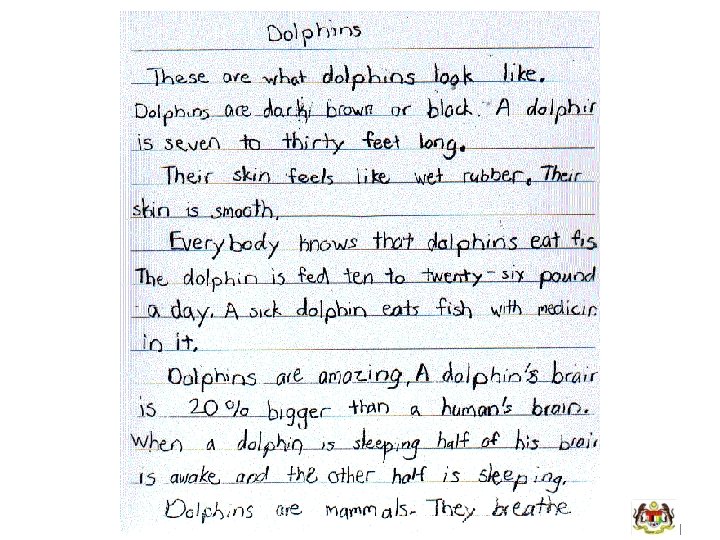 Dolphins
These are what dolphins look like.
Dolphins are dark, brown or black. A dolphin
is seven to thirty feet long.
Their skin feels like wet rubber. Their
skin is smooth.
Everybody knows that dolphins eat fis
The dolphin is fed ten to twenty-six pound
a day. A sick dolphin eats fish with medicin
in it.
Dolphins are amazing. A dolphin's brain
is 20% bigger than a human's brain.
When a dolphin is sleeping half of his brain
is awake and the other half is sleeping.
Dolphins are mammals. They breathe